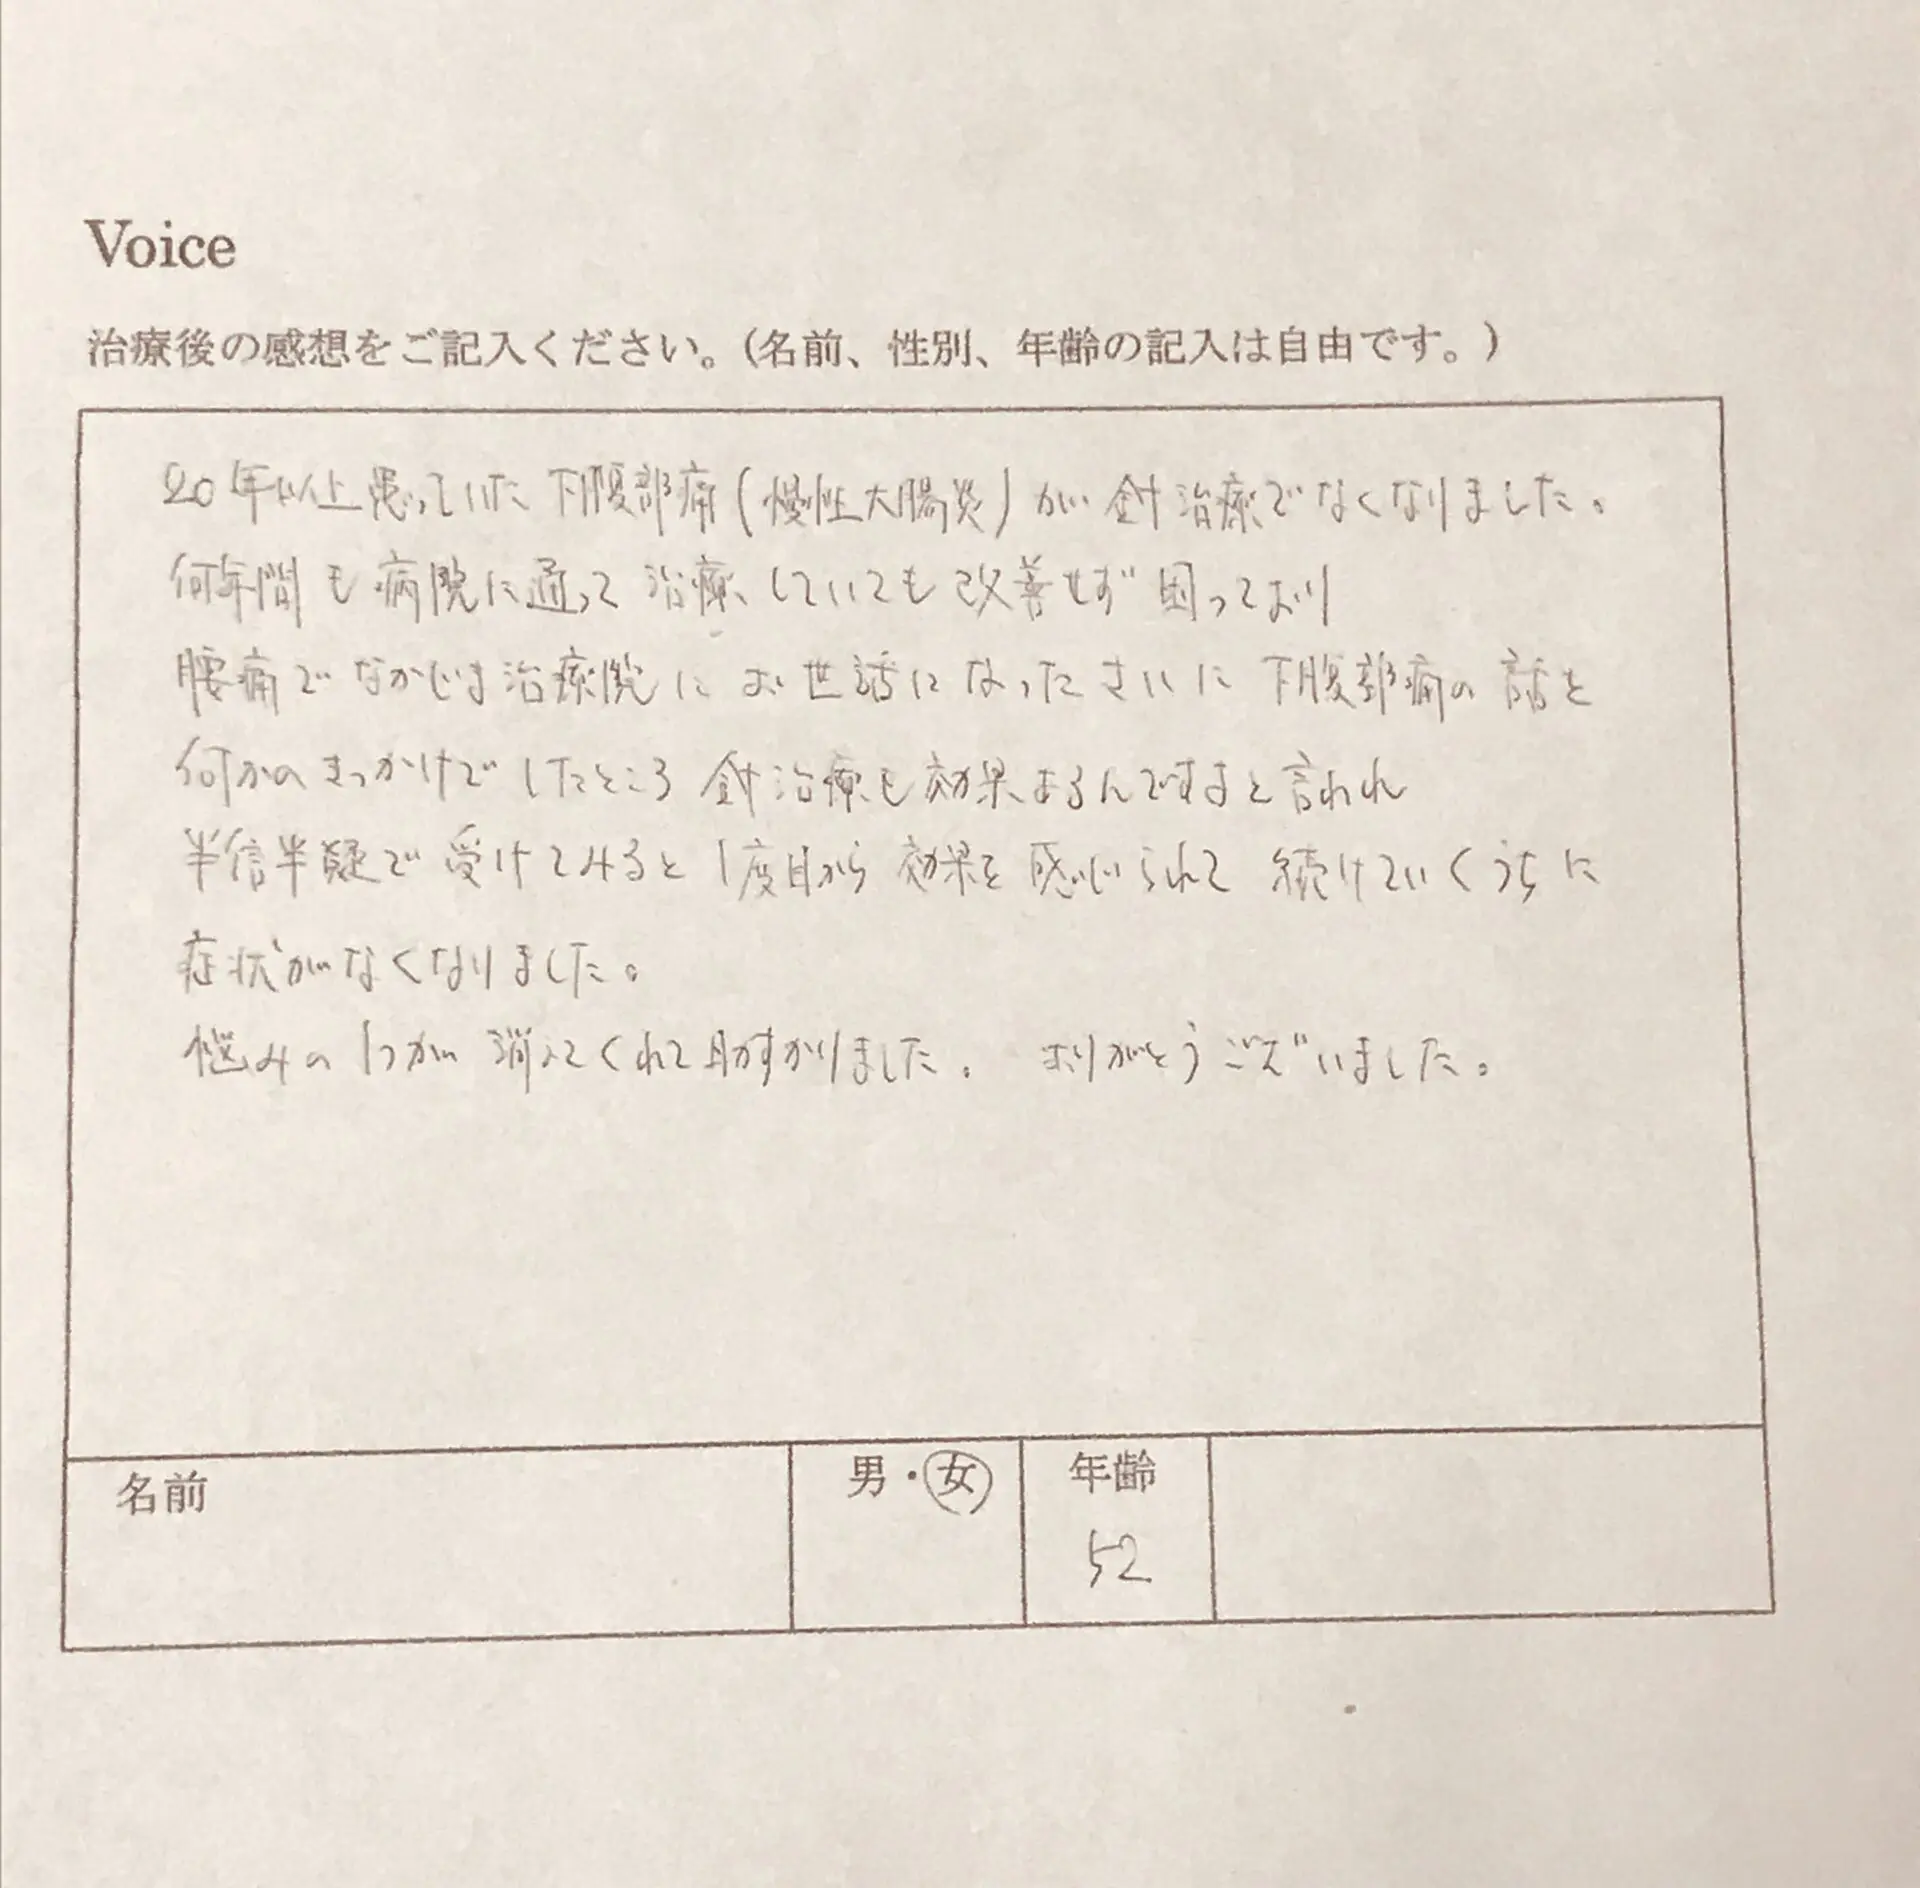 Voice
治療後の感想をご記入ください。(名前、性別、年齢の記入は自由です。)
20年以上患っていた下腹部痛(慢性大腸炎)が針治療でなくなりました。
何年間も病院に通って治療していても改善せず困っており
腰痛でなかじま治療院にお世話になったさいに下腹部痛の話を
何かのきっかけでしたところ針治療も効果あるんですよと言われ
半信半疑で受けてみると1度目から効果を感じられて続けていくうちに
症状がなくなりました。
悩みの1つが消えてくれて助すかりました。ありがとうございました。
名前 男・女 年齢
52